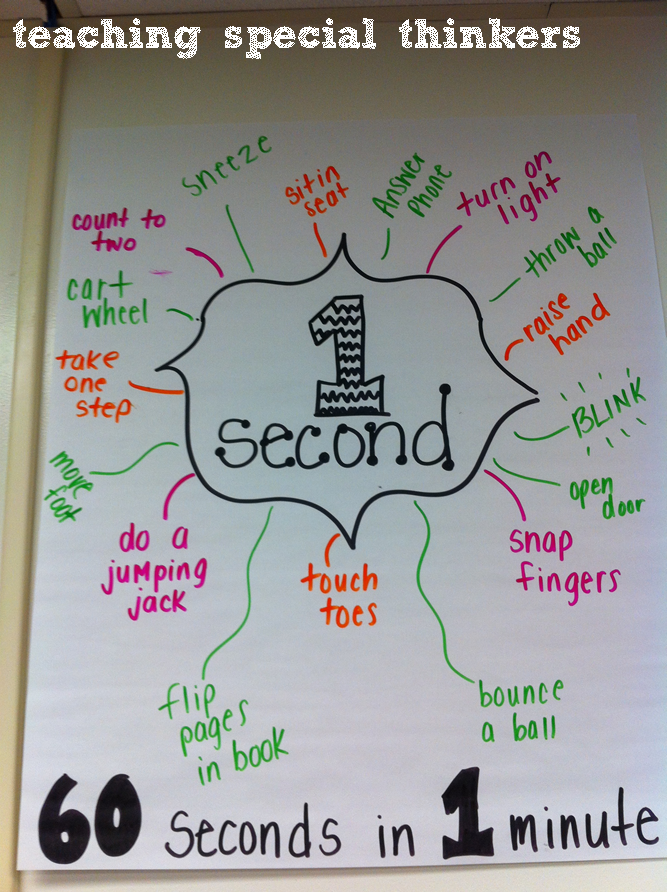 teaching special thinkers
sneeze
sit in
seat
Answer
phone
turn on
light
count to
two
throw a
ball
cart
wheel
raise
hand
take
one
step
1
second
BLINK
move
foot
open
door
do a
jumping
jack
touch
toes
snap
fingers
flip
pages
in book
bounce
a ball
60 seconds in 1 minute